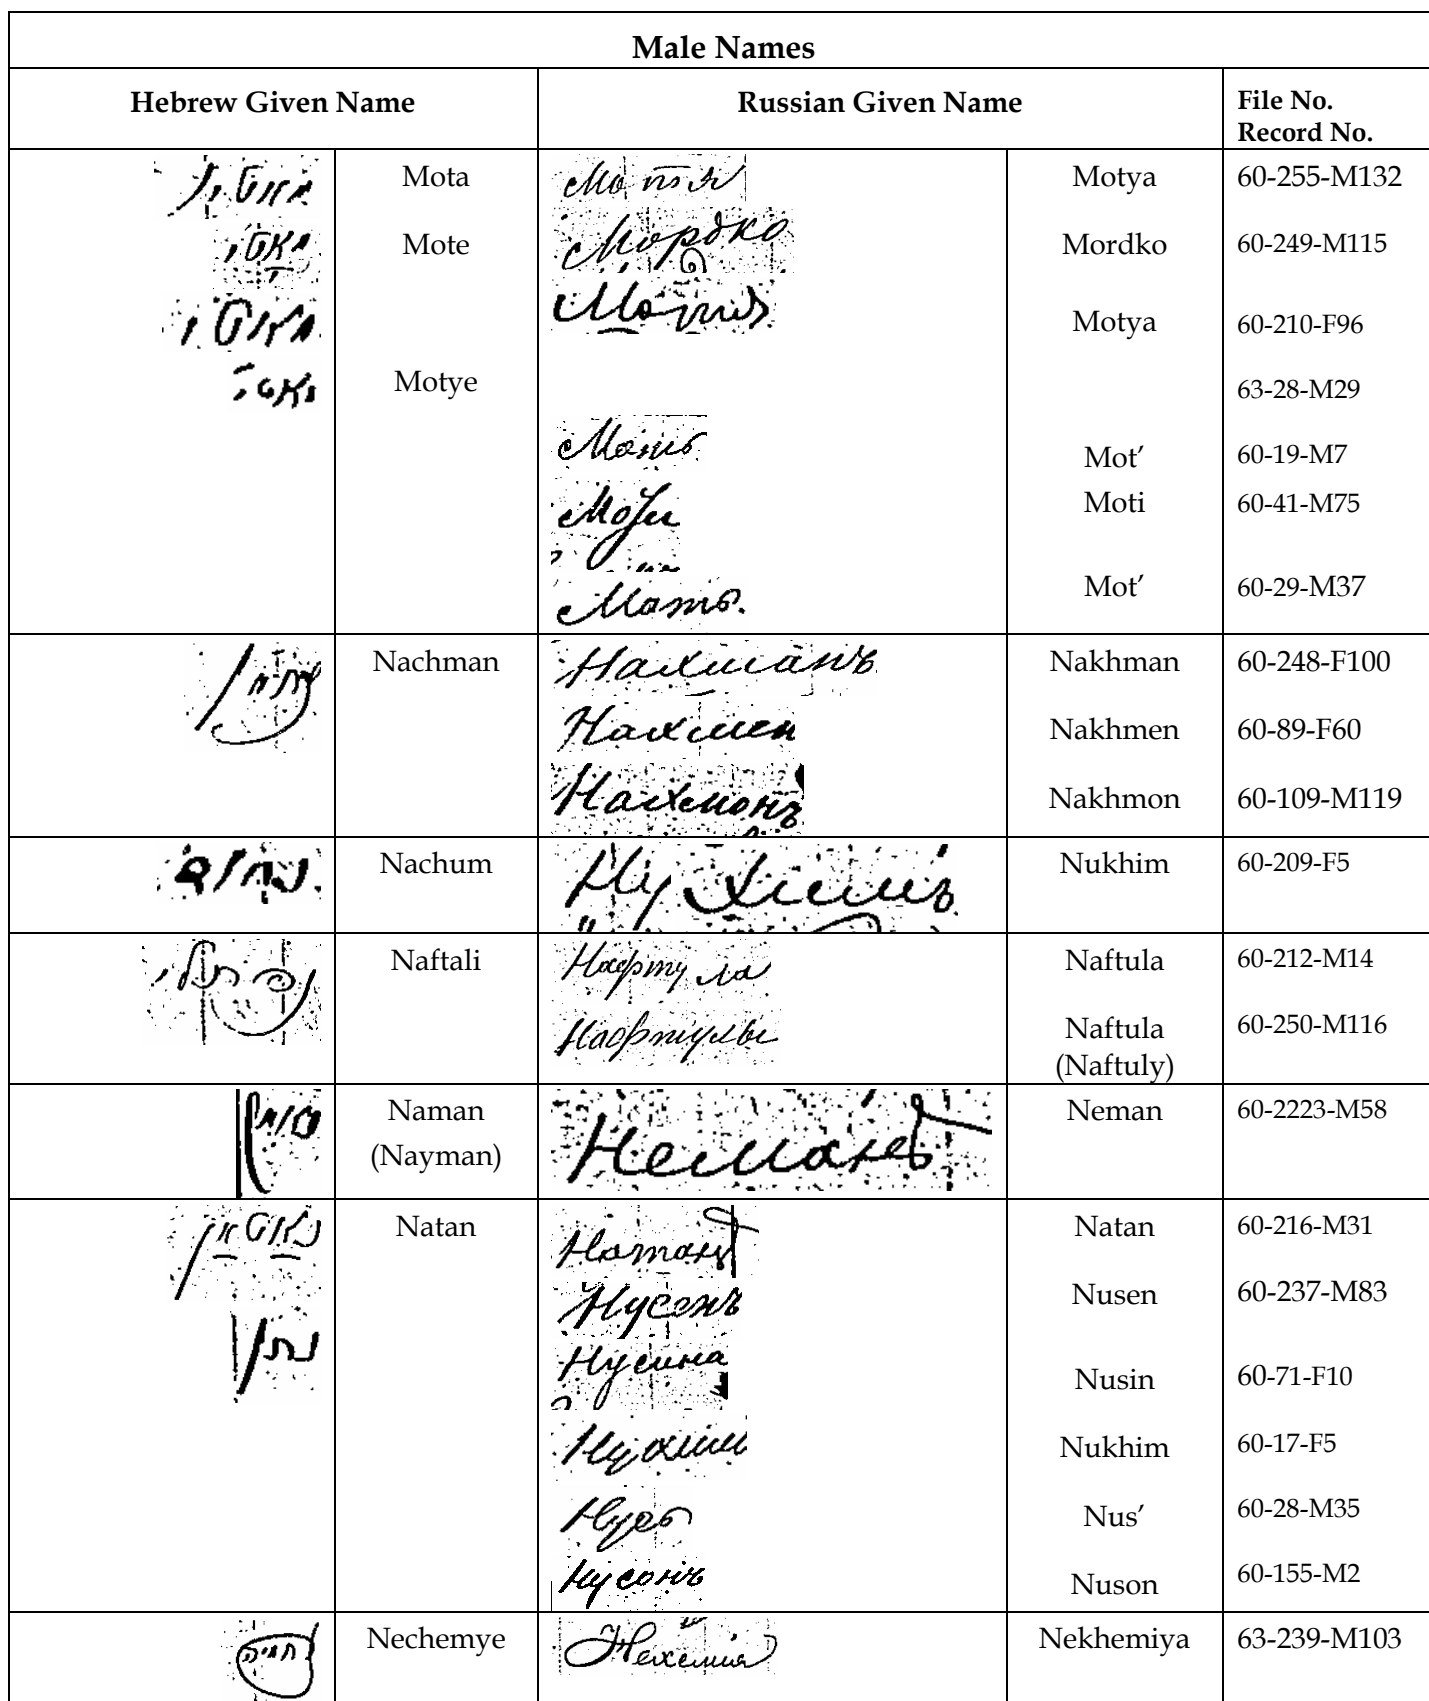 Male Names
Hebrew Given Name Russian Given Name File No. Record No.
מאטי Mota Мотя Motya 60-255-M132
מאטי Mote Мордко Mordko 60-249-M115
מאטי Мотя Motya 60-210-F96
מאטי Motye 63-28-M29
Моть Mot’ 60-19-M7
Моти Moti 60-41-M75
Моть Mot’ 60-29-M37
נחמן Nachman Нахманъ Nakhman 60-248-F100
Нахмен Nakhmen 60-89-F60
Нахмонъ Nakhmon 60-109-M119
נחום Nachum Нухимъ Nukhim 60-209-F5
נפתלי Naftali Нафтула Naftula 60-212-M14
Нафтулы Naftula 60-250-M116
(Naftuly)
Naman Неманъ Neman 60-2223-M58
(Nayman)
נאטאן Natan Натанъ Natan 60-216-M31
Нусенъ Nusen 60-237-M83
נתן Нусина Nusin 60-71-F10
Нухим Nukhim 60-17-F5
Нусь Nus’ 60-28-M35
Нусонъ Nuson 60-155-M2
נחמיה Nechemye Нехемия Nekhemiya 63-239-M103